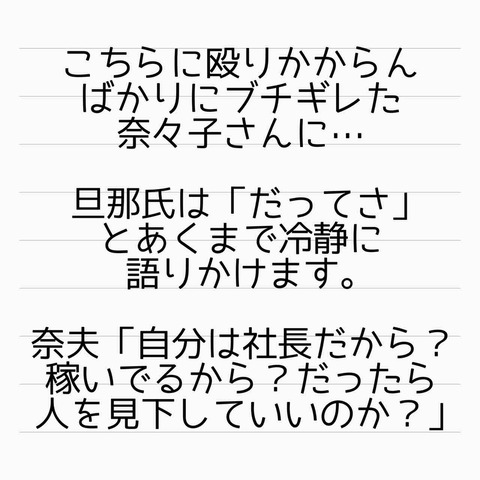 こちらに殴りかからん
ばかりにブチギレた
奈々子さんに…
旦那氏は「だってさ」
とあくまで冷静に
語りかけます。
奈夫「自分は社長だから？
稼いでるから？だったら
人を見下していいのか？」